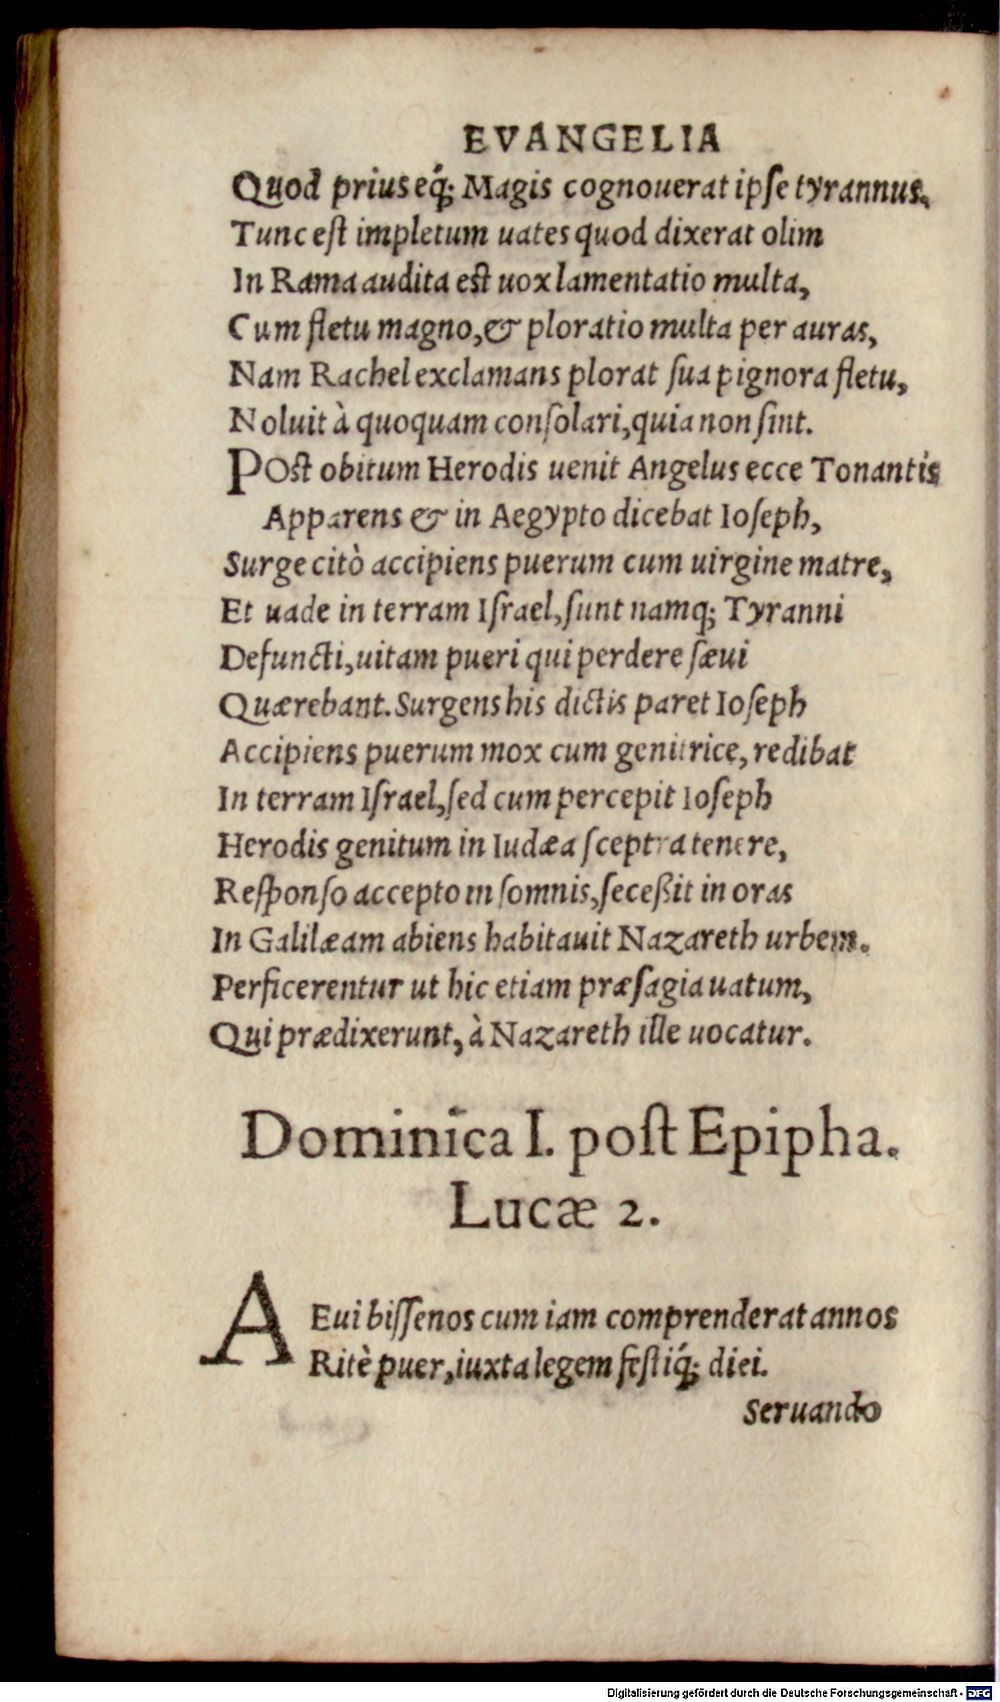 EVANGELIA
Quod prius eq́; Magis cognouerat ipſe tyrannus.
Tunc eſt impletum uates quod dixerat olim
In Rama audita eſt uox lamentatio multa,
Cum fletu magno, & ploratio multa per auras,
Nam Rachel exclamans plorat ſua pignora fletu,
Noluit à quoquam conſolari, quia non ſint.
POſt obitum Herodis uenit Angelus ecce Tonantis
Apparens & in Aegypto dicebat Ioſeph,
Surge citò accipiens puerum cum uirgine matre,
Et uade in terram Iſrael, ſunt namq; Tyranni
Defuncti, uitam pueri qui perdere ſæui
Quærebant. Surgens his dictis paret Ioſeph
Accipiens puerum mox cum genitrice, redibat
In terram Iſrael, ſed cum percepit Ioſeph
Herodis genitum in Iudæa ſceptra tenere,
Reſponſo accepto in ſomnis, ſeceßit in oras
In Galilæam abiens habitauit Nazareth urbem.
Perficerentur ut hic etiam præſagia uatum,
Qui prædixerunt, à Nazareth ille uocatur.
Dominica I. poſt Epipha.
Lucæ 2.
AEui biſſenos cum iam comprenderat annos
Ritè puer, iuxta legem feſtiq́; diei.
Seruando
Digitalisierung gefördert durch die Deutsche Forschungsgemeinschaft - DFG